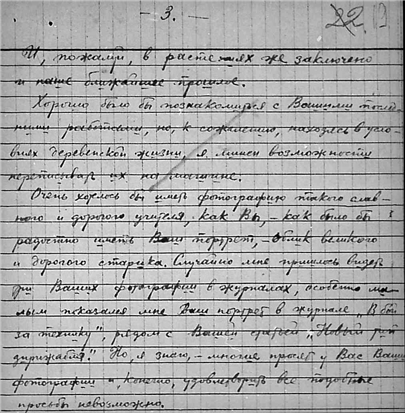 - 3. -
22
И, пожалуй, в растениях же заключено
и наше ближайшее прошлое.
Хорошо было бы познакомиться с Вашими послед-
ними работами, но, к сожалению, находясь в усло-
виях деревенской жизни, я лишен возможности
переписывать их на машине.
Очень хотелось бы иметь фотографию такого слав-
ного и дорогого учителя, как Вы, - как было бы
радостно иметь Ваш портрет, - облик великого
и дорогого старика. Случайно мне пришлось видеть
две Ваших фотографии в журналах, особенно ми-
лым показался мне Ваш портрет в журнале „В бой
за технику", рядом с Вашей статьей „Новый тип
дирижабля". Но, я знаю, - многие просят у Вас Ваши
фотографии и, конечно, удовлетворить все подобные
просьбы невозможно.